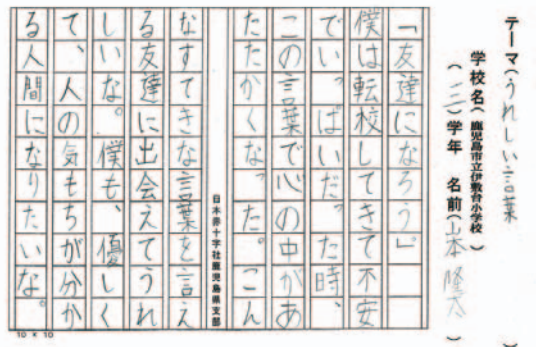 テーマ（うれしい言葉）
学校名（鹿児島市立伊敷台小学校）
（三）学年　名前（山本 隆太）
「友達になろう」。
僕は転校してきて不安
でいっぱいだった時、
この言葉で心の中があ
たたかくなった。こん
日本赤十字社鹿児島県支部
なすてきな言葉を言え
る友達に出会えてうれ
しいな。僕も、優しく
て、人の気もちが分か
る人間になりたいな。
10 × 10